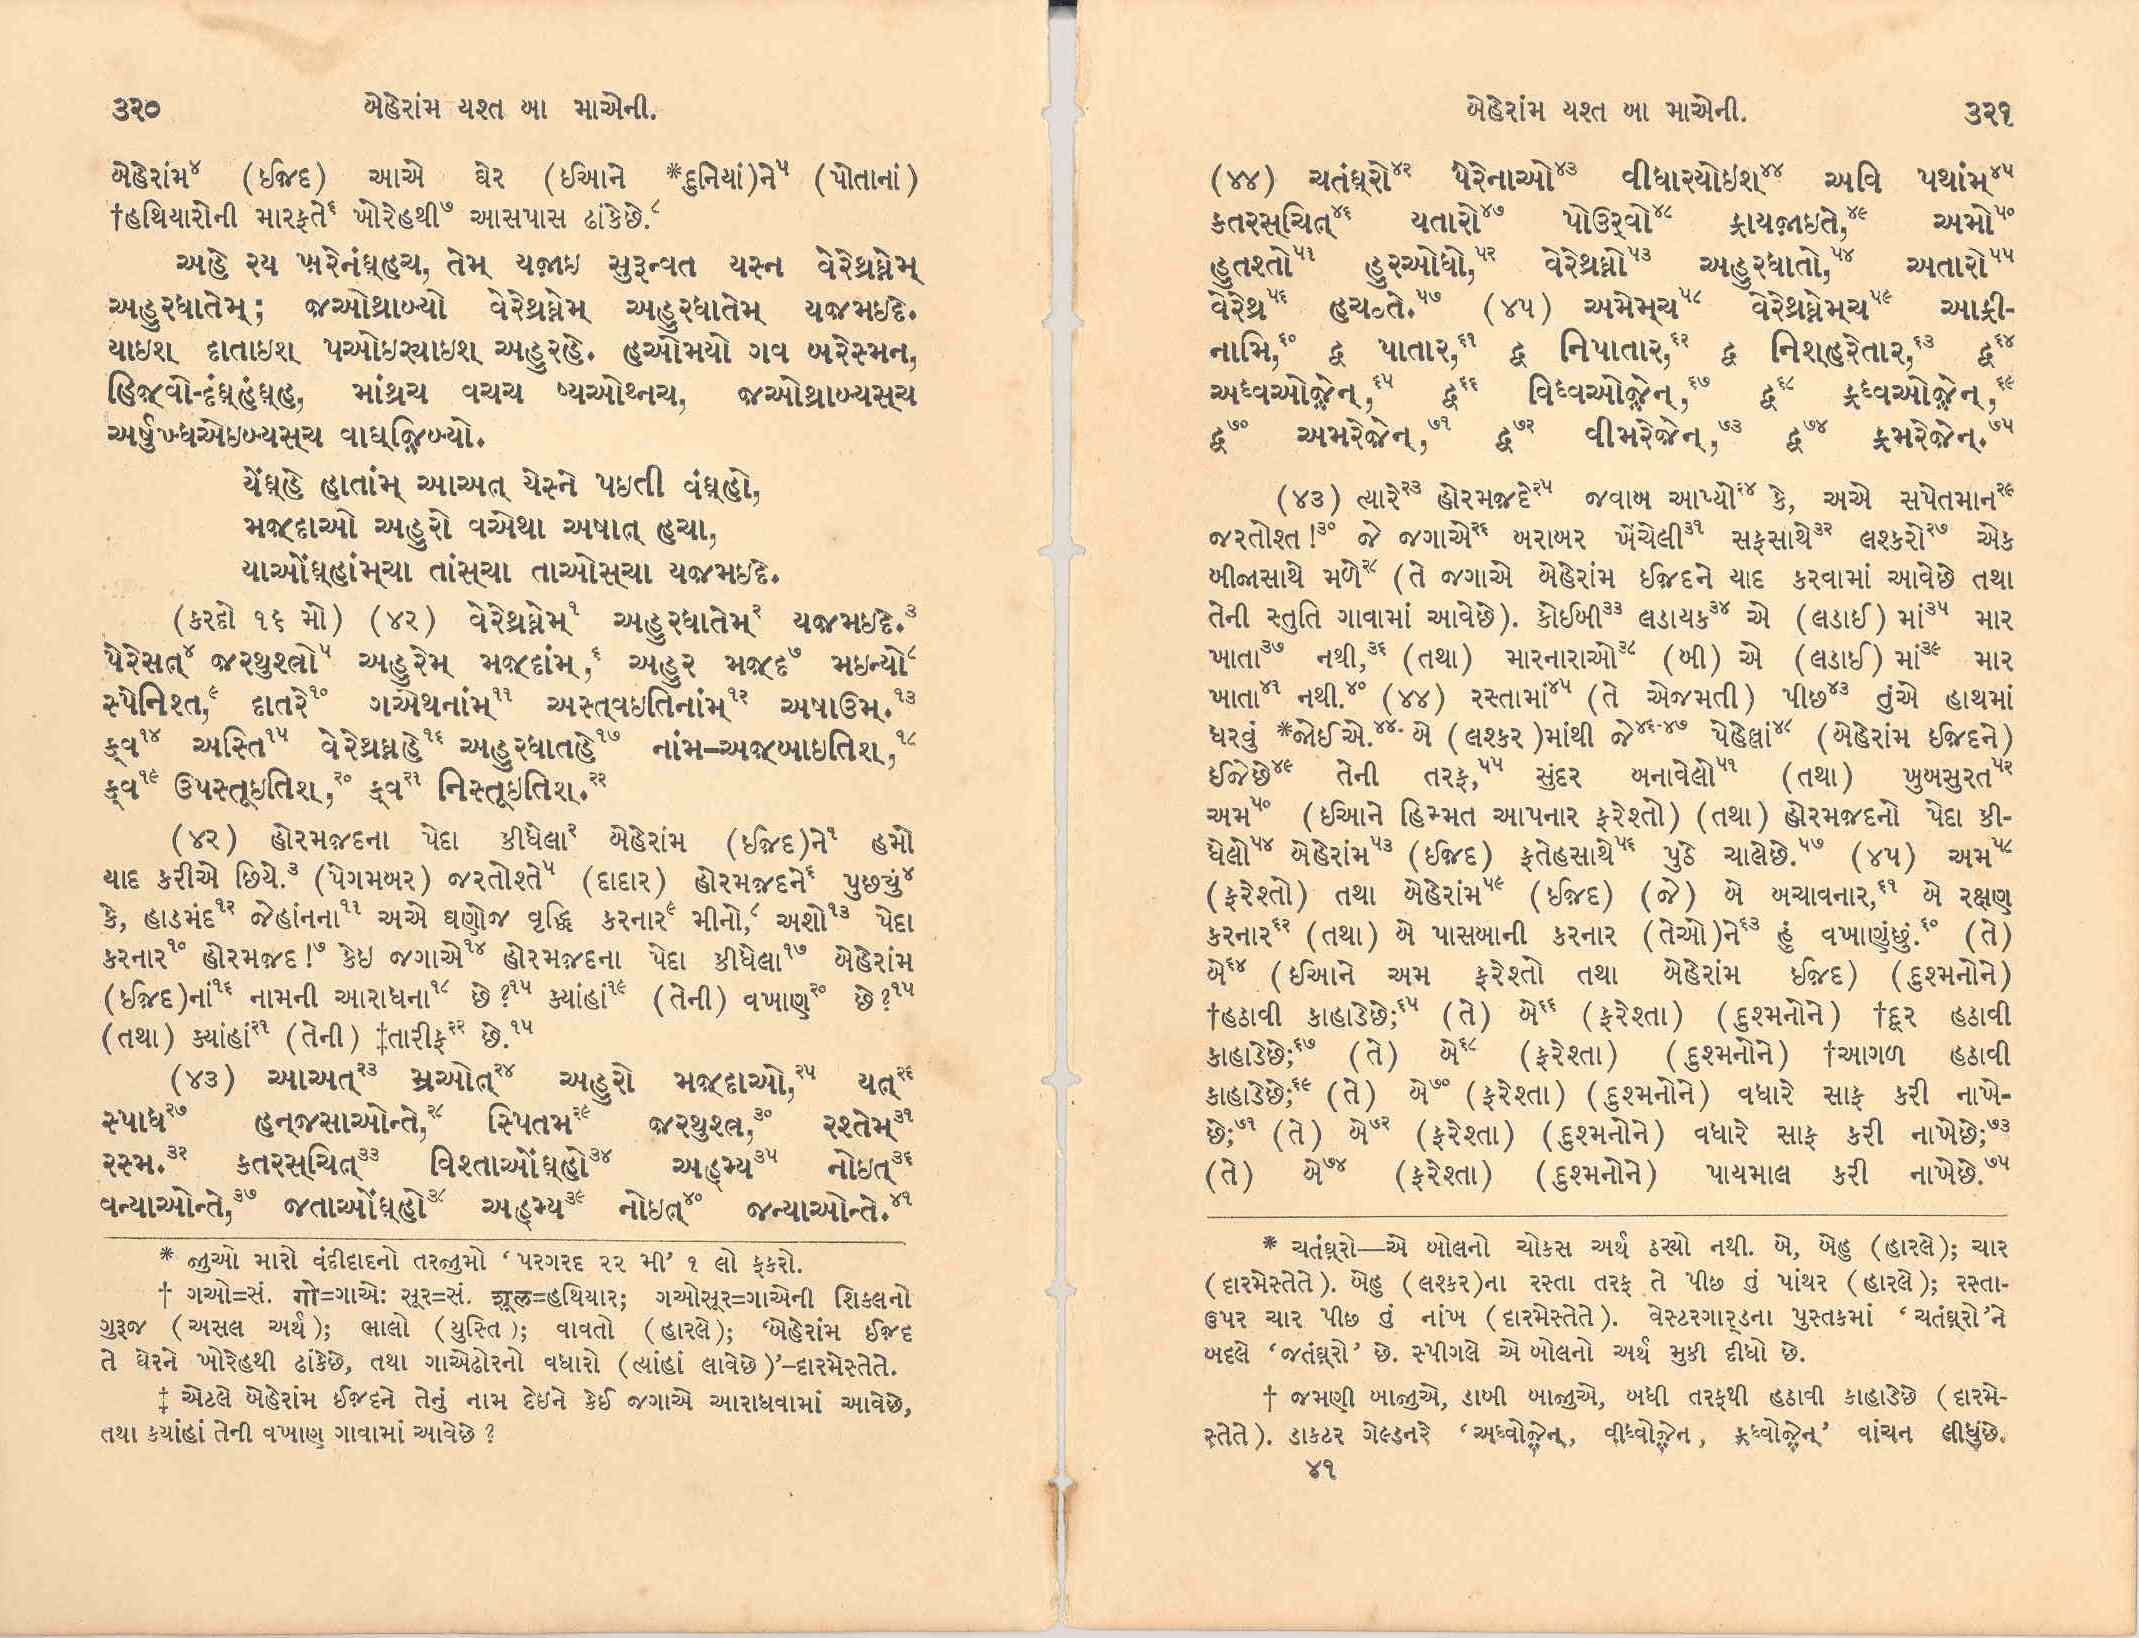 ૩૨૦ બેહેરાંમ યશ્ત બા માએની.
બેહેરાંમ૪ (ઈજ઼દ) આએ ઘેર (ઈઆને *દુનિયાં)ને૫ (પોતાનાં)
†હથિયારોની મારફતે૬ ખોરેહથી૭ આસપાસ ઢાંકેછે.૮
અહે રય ખ઼રેનંઘ્હચ, તેમ્ યજ઼ાઇ સુરૂન્વત યસ્ન વેરેથ્રઘ્નેમ્
અહુરધાતેમ્; જ઼ઓથ્રાબ્યો વેરેથ્રઘ્નેમ્ અહુરધાતેમ્ યજ઼મઇદે.
યાઇશ્ દાતાઇશ્ પઓઇર્યાઇશ્ અહુરહે. હઓમયો ગવ બરેસ્મન,
હિજ઼્વો-દંઘ્હંઘ્હ, માંથ્રચ વચચ ષ્યઓથ્નચ, જ઼ઓથ્રાબ્યસ્ચ
અર્ષુખ્ધએઇબ્યસ્ચ વાઘ્જ઼િબ્યો.
યેંઘ્હે હાતાંમ્ આઅત્ યેસ્ને પઇતી વંઘ્હો,
મજ઼્દાઓ અહુરો વએથા અષાત્ હચા,
યાઓંઘ્હાંમ્ચા તાંસ્ચા તાઓસ્ચા યજ઼મઇદે.
(કરદો ૧૬ મો) (૪૨) વેરેથ્રઘ્નેમ્૧ અહુરધાતેમ્૨ યજ઼મઇદે.૩
પેરેસત્૪ જ઼રથુશ્ત્રો૫ અહુરેમ્ મજ઼્દાંમ્,૬ અહુર મજ઼્દ૭ મઇન્યો૮
સ્પેનિશ્ત,૯ દાતરે૧૦ ગએથનાંમ્૧૧ અસ્ત્વઇતિનાંમ્૧૨ અષાઉમ્.૧૩
ક્વ૧૪ અસ્તિ૧૫ વેરેથ્રઘ્નહે૧૬ અહુરધાતહે૧૭ નાંમ–અજ઼્બાઇતિશ્,૧૮
ક્વ૧૯ ઉપસ્તૂઇતિશ્,૨૦ ક્વ૨૧ નિસ્તૂઇતિશ્.૨૨
(૪૨) હોરમજ઼દના પેદા કીધેલા૨ બેહેરાંમ (ઈજ઼દ)ને૧ હમો
યાદ કરીએ છિયે.૩ (પેગમબર) જરતોશ્તે૫ (દાદાર) હોરમજ઼દને૬ પુછયું૪
કે, હાડમંદ૧૨ જેહાંનના૧૧ અએ ઘણોજ વૃદ્ધિ કરનાર૯ મીનો,૮ અશો૧૩ પેદા
કરનાર૧૦ હોરમજ઼દ!૭ કેઇ જગાએ૧૪ હોરમજ઼દના પેદા કીધેલા૧૭ બેહેરાંમ
(ઈજ઼દ)નાં૧૬ નામની આરાધના૧૮ છે?૧૫ ક્યાંહાં૧૯ (તેની) વખાણ૨૦ છે?૧૫
(તથા) ક્યાંહાં૨૧ (તેની) ‡તારીફ૨૨ છે.૧૫
(૪૩) આઅત્૨૩ મ્રઓત્૨૪ અહુરો મજ઼્દાઓ,૨૫ યત્૨૬
સ્પાધ૨૭ હન્જસાઓન્તે,૨૮ સ્પિતમ૨૯ જ઼રથુશ્ત્ર,૩૦ રશ્તેમ્૩૧
રસ્મ.૩૨ કતરસ્ચિત્૩૩ વિશ્તાઓંઘ્હો૩૪ અહ્મ્ય૩૫ નોઇત્૩૬
વન્યાઓન્તે,૩૭ જતાઓંઘ્હો૩૮ અહ્મ્ય૩૯ નોઇત્૪૦ જન્યાઓન્તે.૪૧
* જુઓ મારો વંદીદાદનો તરજુમો ‘પરગરદ ૨૨ મી’ ૧ લો ફકરો.
† ગઓ=સં. गो=ગાએ: સૂર=સં. शूल=હથિયાર; ગઓસૂર=ગાએની શિકલનો
ગુરજ (અસલ અર્થ); ભાલો (યુસ્તિ); વાવતો (હારલે); ‘બેહેરાંમ ઈજ઼દ
તે ઘેરને ખોરેહથી ઢાંકેછે, તથા ગાએઢોરનો વધારો (ત્યાંહાં લાવેછે)’–દારમેસ્તેતે.
‡ એટલે બેહેરાંમ ઈજ઼દને તેનું નામ દેઇને કેઈ જગાએ આરાધવામાં આવેછે,
તથા કયાંહાં તેની વખાણ ગાવામાં આવેછે ?
બેહેરાંમ યશ્ત બા માએની. ૩૨૧
(૪૪) ચતંઘ્રો૪૨ પેરેનાઓ૪૩ વીધારયોઇશ્૪૪ અવિ પથાંમ્૪૫
કતરસ્ચિત્૪૬ યતારો૪૭ પોઉર્વો૪૮ ફ્રાયજ઼ાઇતે,૪૯ અમો૫૦
હુતશ્તો૫૧ હુરઓધો,૫૨ વેરેથ્રઘ્નો૫૩ અહુરધાતો,૫૪ અતારો૫૫
વેરેથ્ર૫૬ હચ૦તે.૫૭ (૪૫) અમેમ્ચ૫૮ વેરેથ્રઘ્નેમ્ચ૫૯ આફ્રી-
નામિ,૬૦ દ્વ પાતાર,૬૧ દ્વ નિપાતાર,૬૨ દ્વ નિશ્હરેતાર,૬૩ દ્વ૬૪
અધ્વઓજ઼ેન્,૬૫ દ્વ૬૬ વિધ્વઓજ઼ેન્,૬૭ દ્વ૬૮ ફ્રધ્વઓજ઼ેન્,૬૯
દ્વ૭૦ અમરેજ઼ેન્,૭૧ દ્વ૭૨ વીમરેજ઼ેન્,૭૩ દ્વ૭૪ ફ્રમરેજ઼ેન્.૭૫
(૪૩) ત્યારે૨૩ હોરમજ઼દે૨૫ જવાબ આપ્યો૨૪ કે, અએ સપેતમાન૨૯
જરતોશ્ત!૩૦ જે જગાએ૨૬ બરાબર ખેંચેલી૩૧ સફસાથે૩૨ લશ્કરો૨૭ એક
બીજાસાથે મળે૨૮ (તે જગાએ બેહેરાંમ ઈજ઼દને યાદ કરવામાં આવેછે તથા
તેની સ્તુતિ ગાવામાં આવેછે). કોઈબી૩૩ લડાયક૩૪ એ (લડાઈ) માં૩૫ માર
ખાતા૩૭ નથી,૩૬ (તથા) મારનારાઓ૩૮ (બી) એ (લડાઈ) માં૩૯ માર
ખાતા૪૧ નથી.૪૦ (૪૪) રસ્તામાં૪૫ (તે એજમતી) પીછ૪૩ તુંએ હાથમાં
ધરવું *જોઈએ.૪૪ બે (લશ્કર)માંથી જે૪૬-૪૭ પેહેલાં૪૮ (બેહેરાંમ ઈજ઼દને)
ઈજેછે૪૯ તેની તરફ,૫૫ સુંદર બનાવેલો૫૧ (તથા) ખુબસુરત૫૨
અમ૫૦ (ઈઆને હિમ્મત આપનાર ફરેશ્તો) (તથા) હોરમજ઼દનો પેદા કી-
ધેલો૫૪ બેહેરાંમ૫૩ (ઈજ઼દ) ફતેહસાથે૫૬ પુઠે ચાલેછે.૫૭ (૪૫) અમ૫૮
(ફરેશ્તો) તથા બેહેરાંમ૫૯ (ઈજ઼દ) (જે) બે બચાવનાર,૬૧ બે રક્ષણ
કરનાર૬૨ (તથા) બે પાસબાની કરનાર (તેઓ)ને૬૩ હું વખાણુંછું.૬૦ (તે)
બે૬૪ (ઈઆને અમ ફરેશ્તો તથા બેહેરાંમ ઈજ઼દ) (દુશ્મનોને)
†હઠાવી કાહાડેછે;૬૫ (તે) બે૬૬ (ફરેશ્તા) (દુશ્મનોને) †દૂર હઠાવી
કાહાડેછે;૬૭ (તે) બે૬૮ (ફરેશ્તા) (દુશ્મનોને) †આગળ હઠાવી
કાહાડેછે;૬૯ (તે) બે૭૦ (ફરેશ્તા) (દુશ્મનોને) વધારે સાફ કરી નાખે-
છે;૭૧ (તે) બે૭૨ (ફરેશ્તા) (દુશ્મનોને) વધારે સાફ કરી નાખેછે;૭૩
(તે) બે૭૪ (ફરેશ્તા) (દુશ્મનોને) પાયમાલ કરી નાખેછે.૭૫
* ચતંઘ્રો—એ બોલનો ચોકસ અર્થ ઠર્યો નથી. બે, બેહુ (હારલે); ચાર
(દારમેસ્તેતે). બેહુ (લશ્કર)ના રસ્તા તરફ તે પીછ તું પાંથર (હારલે); રસ્તા-
ઉપર ચાર પીછ તું નાંખ (દારમેસ્તેતે). વેસ્ટરગાર્ડના પુસ્તકમાં ‘ચતંઘ્રો’ને
બદલે ‘જતંઘ્રો’ છે. સ્પીગલે એ બોલનો અર્થ મુકી દીધો છે.
† જમણી બાજુએ, ડાબી બાજુએ, બધી તરફથી હઠાવી કાહાડેછે (દારમે-
સ્તેતે). ડાકટર ગેલ્ડનરે ‘અધ્વોજ઼ેન્, વીધ્વોજ઼ેન, ફ્રધ્વોજ઼ેન્’ વાંચન લીધુંછે.
૪૧